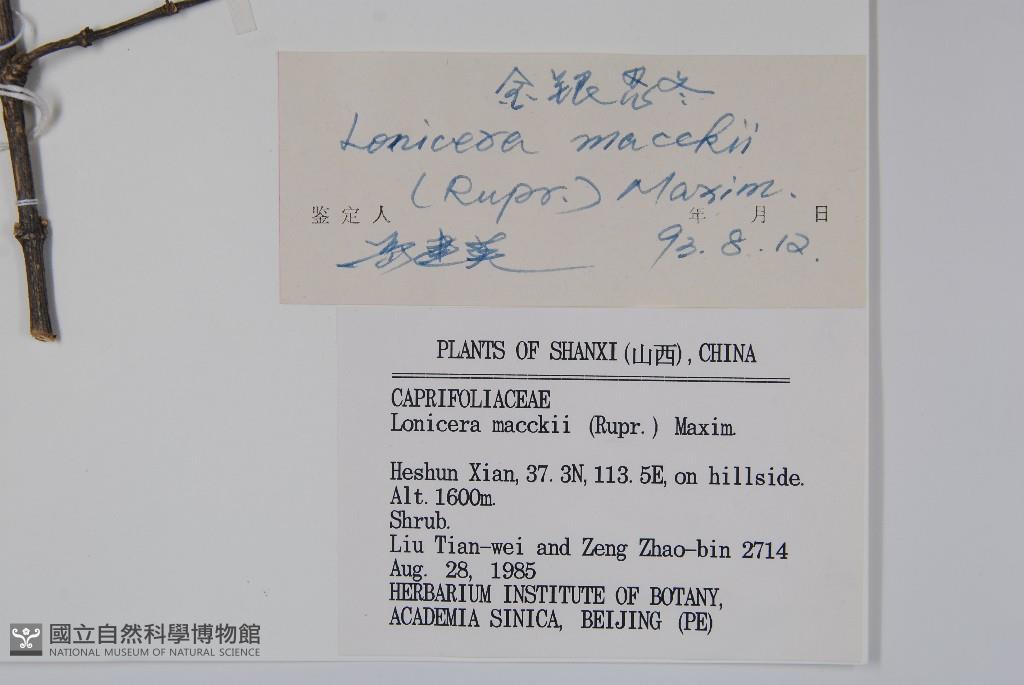 金银忍冬
Lonicera macckii
(Rupr.) Maxim.
鉴定人 年 月 日
建英 93.8.12.
PLANTS OF SHANXI(山西), CHINA
CAPRIFOLIACEAE
Lonicera macckii (Rupr.) Maxim.
Heshun Xian, 37.3N, 113.5E, on hillside.
Alt. 1600m.
Shrub.
Liu Tian-wei and Zeng Zhao-bin 2714
Aug. 28, 1985
HERBARIUM INSTITUTE OF BOTANY,
ACADEMIA SINICA, BEIJING (PE)
國立自然科學博物館
NATIONAL MUSEUM OF NATURAL SCIENCE